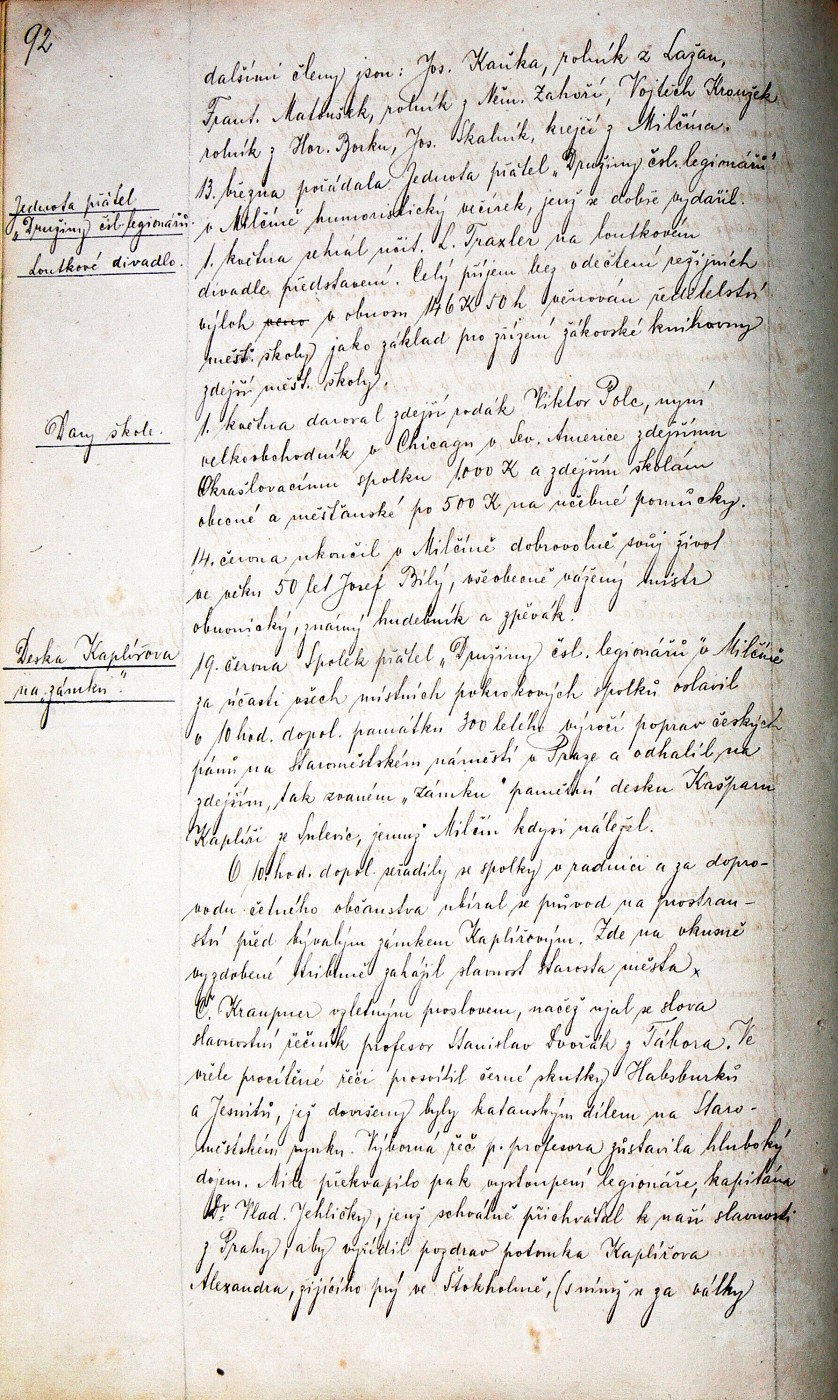 92
dalšími členy jsou: Jos. Kaňka, rolník z Lažan,
Frant. Matoušek, rolník z Něm. Zahoří, Vojtěch Kroužek
rolník z Hor. Borku, Jos. Skalník, krejčí z Milčína.
Jednota přátel
"Družiny čsl. legionářů.
Loutkové divadlo.
13. března pořádala Jednota přátel „Družiny čsl. legionářů"
v Milčíně humoristický večírek, jenž se dobře vydařil.
1. května sehrál učit. L. Traxler na loutkovém
divadle představení. Celý příjem bez odečtení režijních
výloh v obnosu 146 K 50 h věnován ředitelství
měšť. školy jako základ pro zřízení žákovské knihovny
zdejší měšť. školy.
Dary škole.
1. května daroval zdejší rodák Viktor Polc, nyní
velkoobchodník v Chicagu v Sev. Americe zdejšímu
Okrašlovacímu spolku 1.000 K a zdejším školám
obecné a měšťanské po 500 K na učebné pomůcky.
14. června ukončil v Milčíně dobrovolně svůj život
ve věku 50 let Josef Bílý, všeobecně vážený mistr
obuvnický, známý hudebník a zpěvák.
Deska Kaplířova
na „zámku".
19. června Spolek přátel „Družiny čsl. legionářů" v Milčíně
za účasti všech místních pokrokových spolků oslavil
v 10 hod. dopol. památku 300 letého výročí poprav českých
pánů na Staroměstském náměstí v Praze a odhalil na
zdejším, tak zvaném „Zámku" pamětní desku Kašparu
Kaplíři ze Sulevic, jemuž Milčín kdysi náležel.
O 10. hod. dopol. seřadily se spolky v radnici a za dopro-
vodu četného občanstva ubíral se průvod na prostran-
ství před bývalým zámkem Kaplířovým. Zde na vkusně
vyzdobené tribuně zahájil slavnost starosta města
Č. Kraupner vzletným proslovem, načež ujal se slova
slavnostní řečník profesor Stanislav Dvořák z Tábora. Ve
vřele procítěné řeči prosvítil černé skutky Habsburků
a Jesuitů, jež dovršeny byly katanským dílem na Staro-
městském rynku. Výborná řeč p. profesora zůstavila hluboký
dojem. Mile překvapilo pak vystoupení legionáře, kapitána
Dr. Vlad. Jehličky, jenž schválně přichvátal k naší slavnosti
z Prahy, aby vyřídil pozdrav potomka Kaplířova
Alexandra, žijícího prý ve Štokholmě, (s nímž se za války